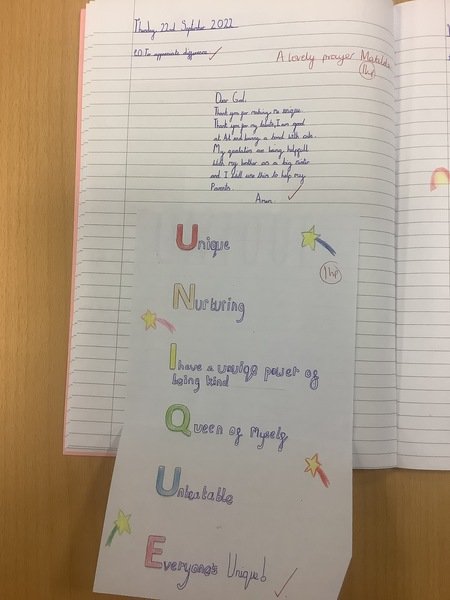 Thursday 22nd September 2022
LO: To appreciate difference
A lovely prayer Matilda
1hp
Dear God,
Thank you for making me unique.
Thank you for my talents, I am good
at Art and being a
My qualities are being helpfull
with my brother as a big sister
and I will use this to help my
Parents.
Amen.
Unique
1hp
Nurturing
I have a unuiqe power of
being kind
Queen of Myself
Unbeatable
Everyone's Unique!